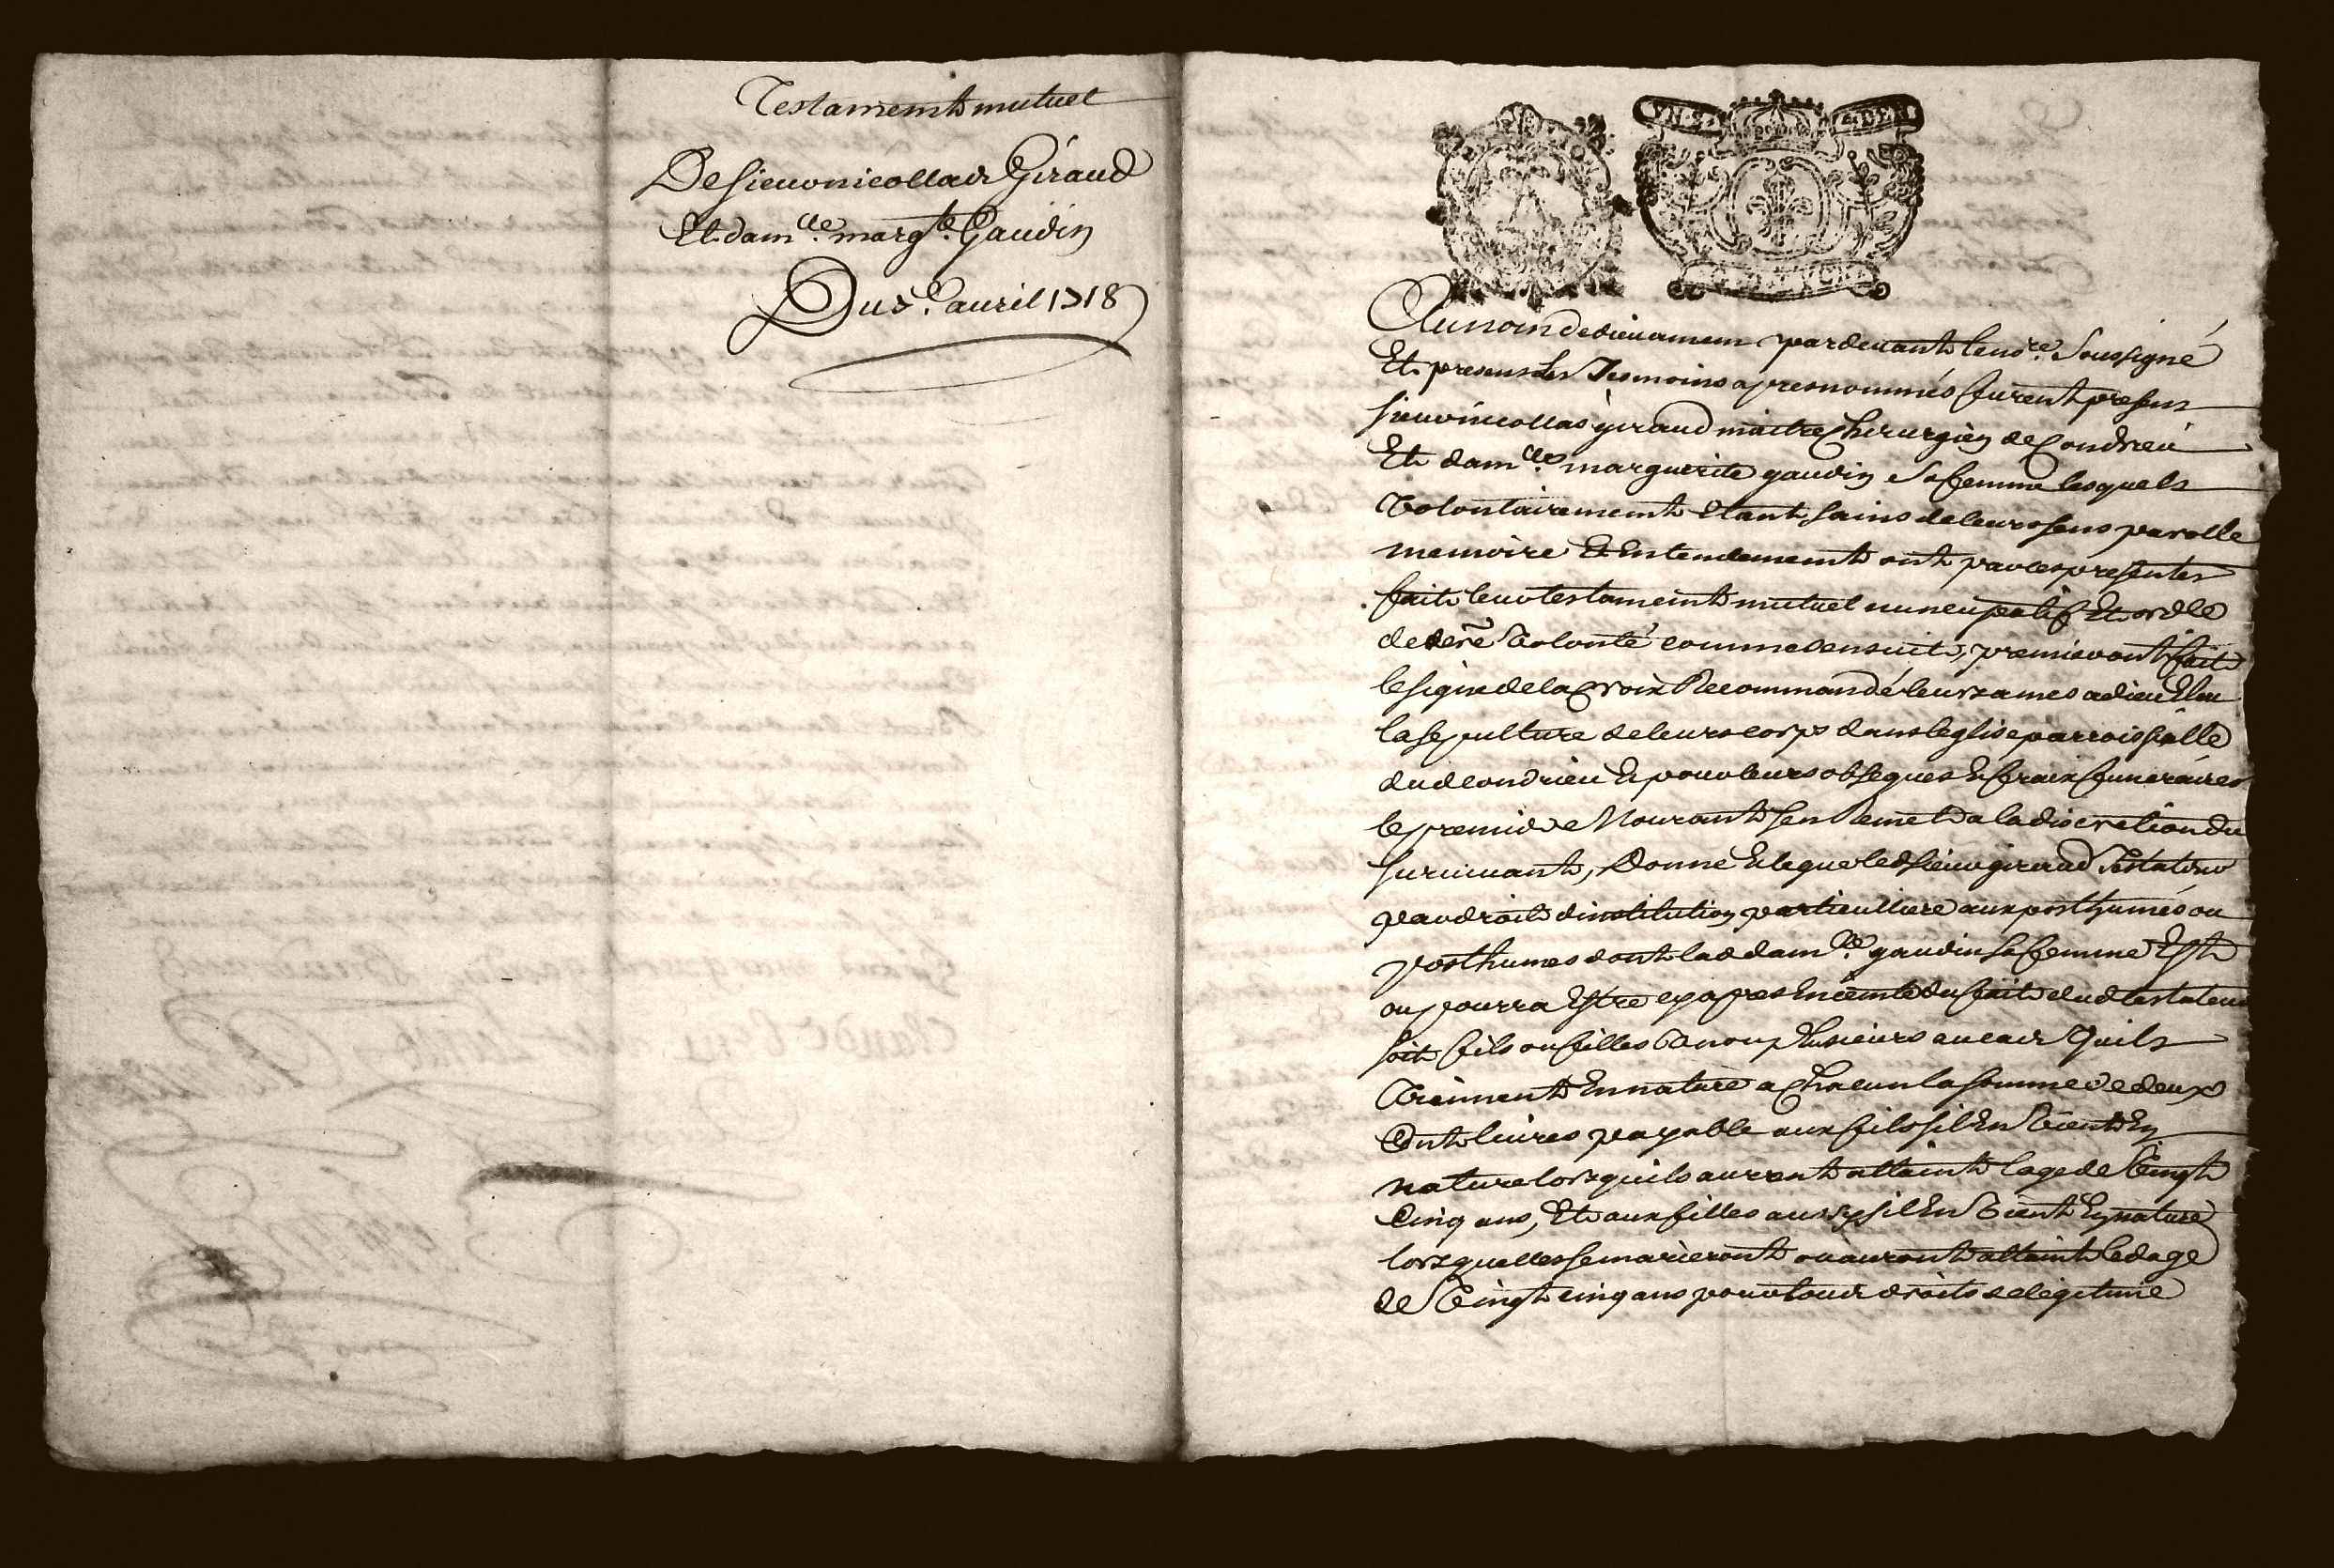 Testament mutuel
De sieur nicollas Giraud
Et dam.lle marg.te Gaudin
Du 5.e auril 1718
VN S. 4 DEN
Au nom de dieu amen par deuant le no.re soussigné
Et presens les Tesmoins apres nommés furent presens
sieur nicollas giraud maitre chirurgien de Condrieu
Et dam.lle marguerite gaudin sa femme lesquels
Volontairement Etant sains de leurs sens parolle
memoire Et Entendement ont par ces presentes
fait leur testament mutuel nuncupatif Et ord.ce
de dere Volonté comme sensuit, premier ont fait
le signe de la Croix Recommandé leurs ames a dieu Elu
la sepulture de leurs corps dans leglise parroissialle
dud Condrieu Et pour leurs obseques Et fraix funeraires
le premier Mourant sen Remet a la discretion du
suruiuant, Donne Et legue led sieur giraud Testateur
par droit dinstitution particulliere aux posthumes ou
posthumes dont lad dam.lle gaudin sa femme Est
ou pourra Estre cy apres Enceinte du fait dud testateur
soit fils ou filles Vn ou plusieurs au cas quils
Viennent En nature a Chacun la somme de deux
Cents liures payable aux fils sil En Vient En
nature lorsquils auront attaint lage de Vingt
Cinq ans, Et aux filles aussy sil En Vient En nature
lorsquelles se marieront ou auront attaint led age
de Vingt cinq ans pour tous droits de legitime